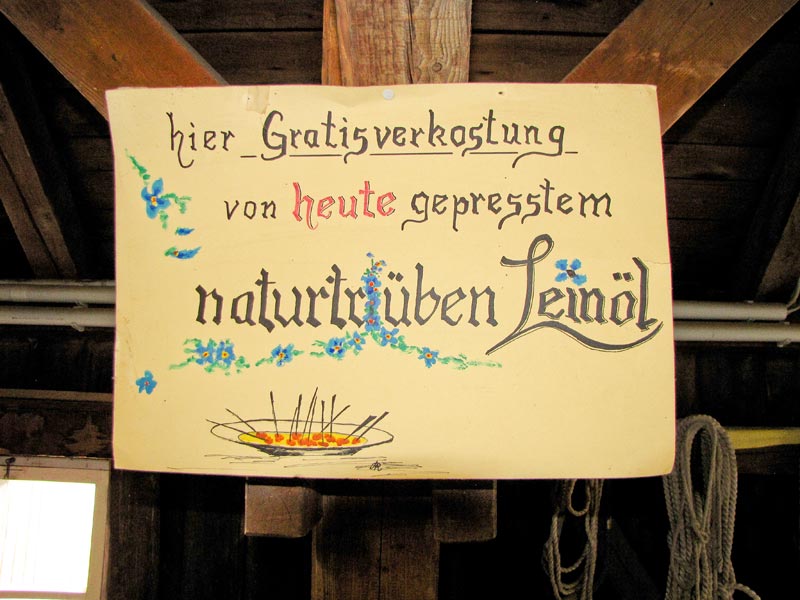 hier Gratisverkostung
von heute gepresstem
naturtrüben Leinöl